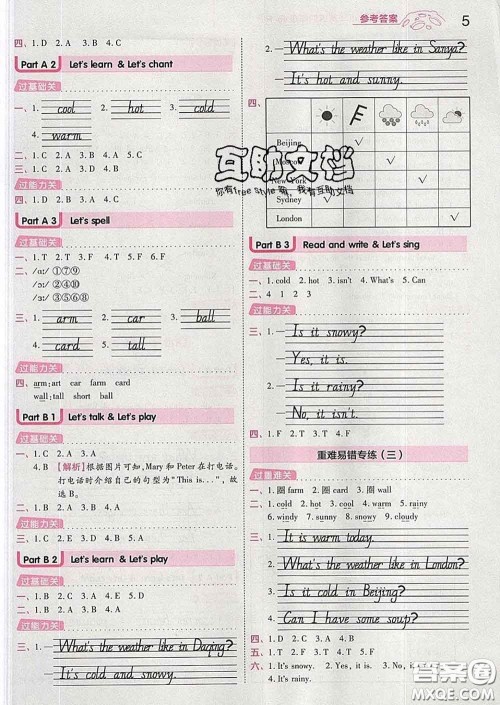 参考答案
5
四、1. D 2. A 3. B 4. C
Part A 2 Let's learn & Let's chant
过基础关
一、1. cool 2. hot 3. cold
4. warm
二、1. C 2. A 3. B 4. A
三、1. C 2. A 3. D 4. B
过能力关
四、1. D 2. A 3. B 4. C
Part A 3 Let's spell
过基础关
一、1. T 2. T 3. F 4. T 5. F
二、/ɑː/ ①⑦⑨
/ɔː/ ②⑤⑥
三、1. arm 2. car 3. ball
4. card 5. tall
过能力关
四、arm: art car farm card
wall: tall short ball
Part B 1 Let's talk & Let's play
过基础关
4. B 【解析】根据图片可知, Mary 和 Peter 在打电话。
打电话时介绍自己的句型为"This is...", 故
选 B。
过能力关
Part B 2 Let's learn & Let's play
过基础关
二、1. D 2. C 3. A 4. E 5. D
过能力关
三、1. —What's the weather like in Daqing?
—It's cold and snowy.
2. —What's the weather like in Sanya?
—It's hot and sunny.
四、
Beijing
New York
Sydney
London
互助文档
你有free style嘛，我有互助文档
Part B 3 Read and write & Let's sing
过基础关
一、1. cold 2. hot 3. isn't 4. What's 5. Can
二、4 1 2 3
过能力关
三、1. —Is it snowy?
—Yes, it is.
2. —Is it rainy?
—No, it isn't.
四、1. F 2. T 3. T 4. F
重难易错专练（三）
过重难关
一、1. 圈 farm 2. 圈 card 3. 圈 wall
二、1. cold 2. cool 3. warm 4. sunny 5. rainy
6. windy 7. sunny 8. snowy 9. cloudy
三、1. It is warm today.
2. What's the weather like in London?
3. Is it cold in Beijing?
4. Can I have some soup?
四、1. D 2. C 3. A 4. B
五、1. T 2. T 3. F 4. F
六、1. It's snowy. 2. Yes, it is. 3. No, i
4. It's rainy.
答案圈
MXQE.COM